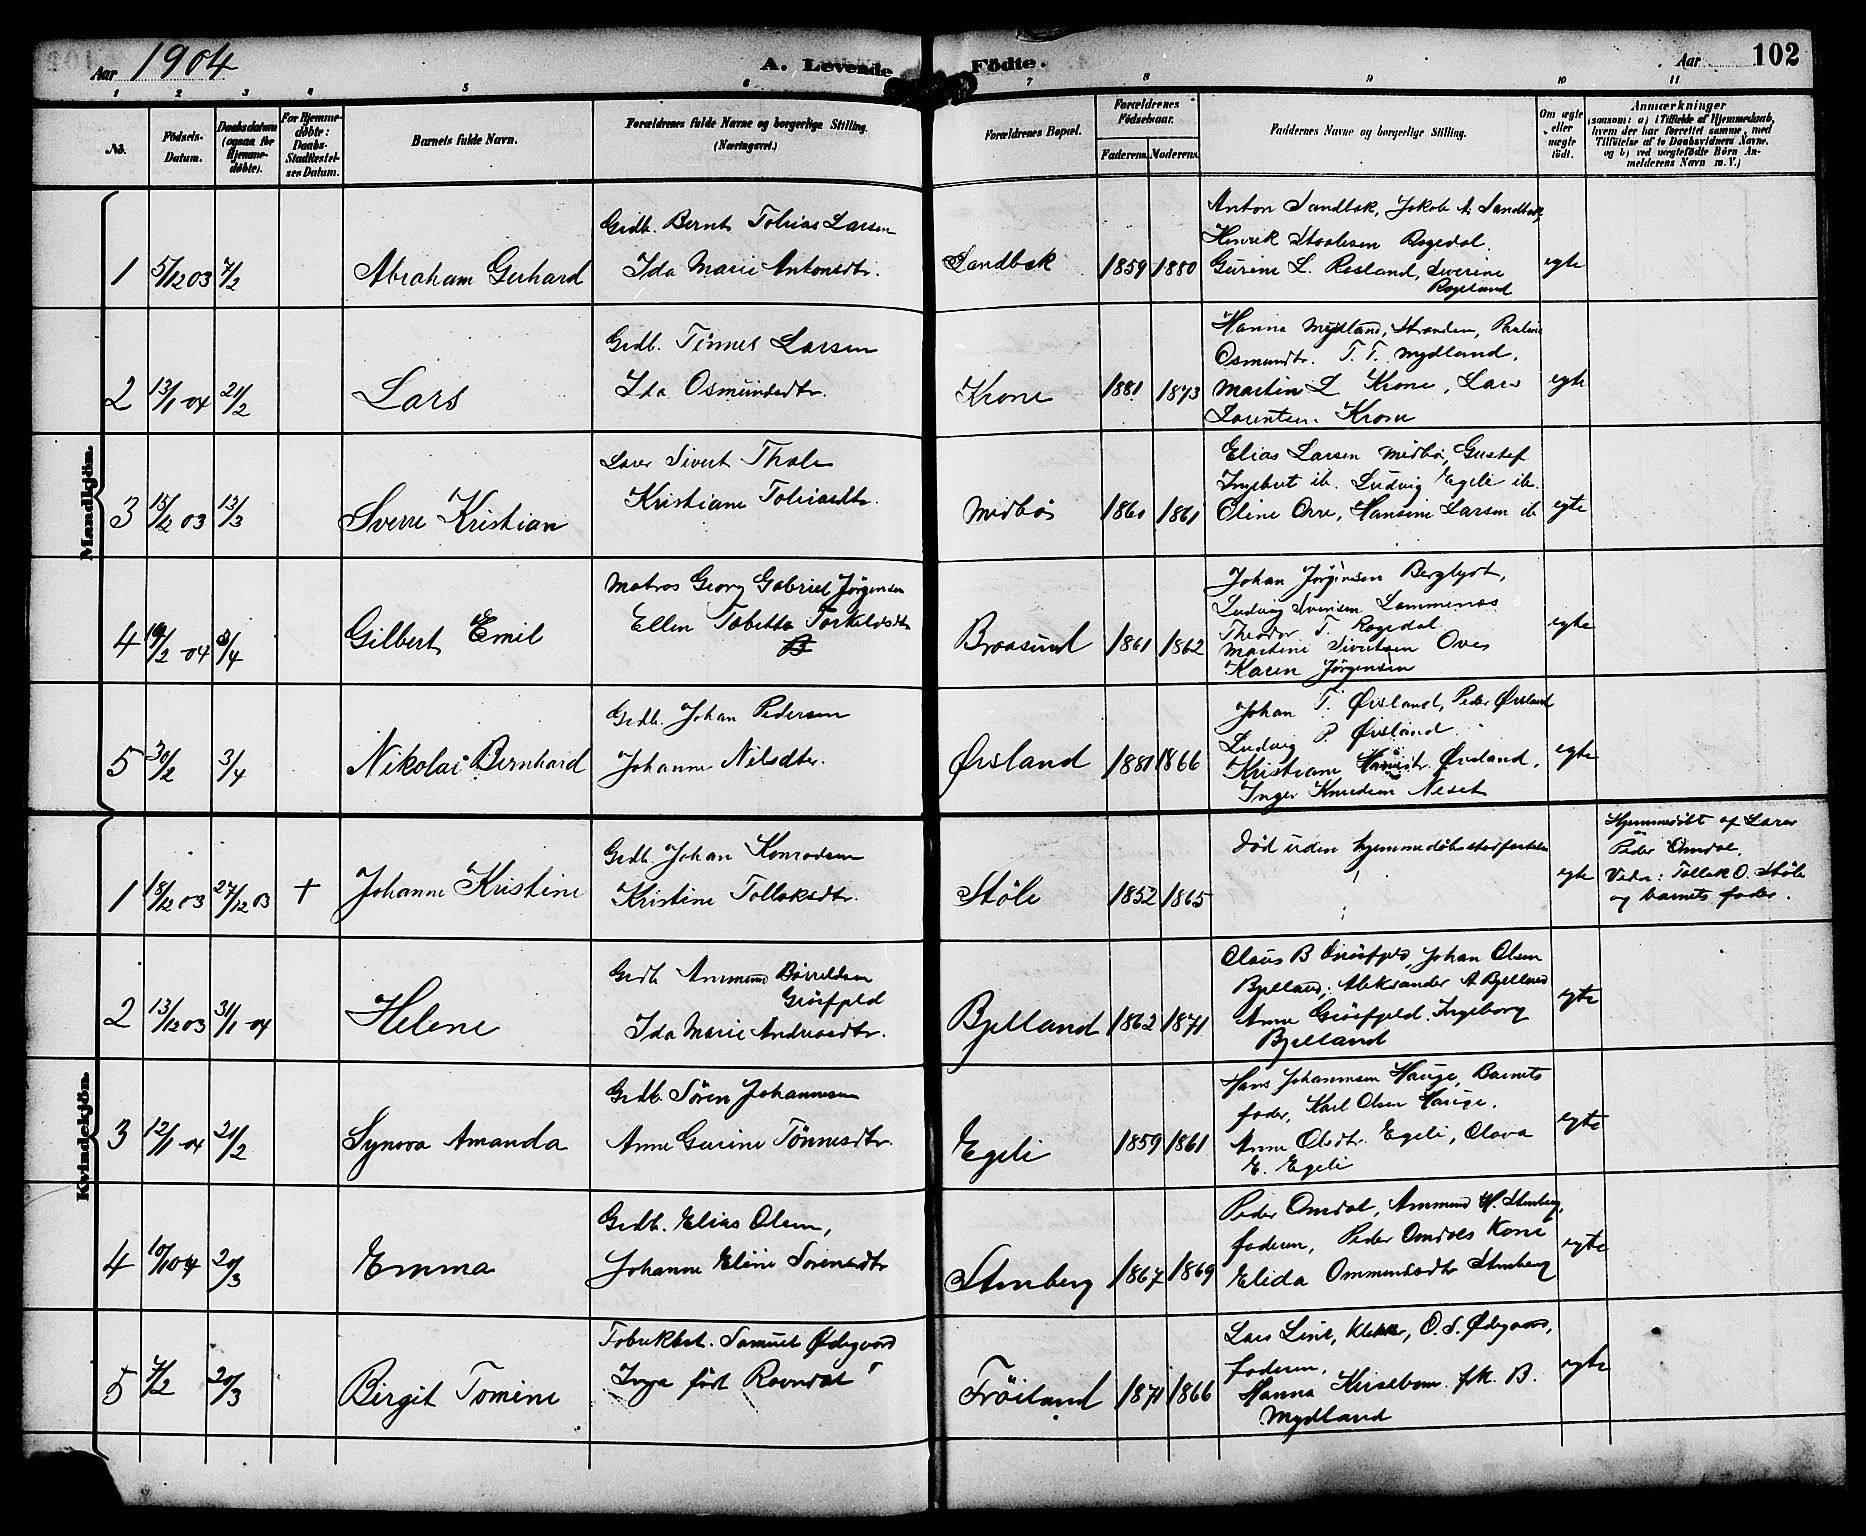 Aar 1904
A. Levende Födte.
Aar 102
1 2 3 4 5 6 7 8 9 10 11
No.
Födsels-Datum.
Daabsdatum (ogsaa for Hjemmedøbte).
For Hjemmedøbte: Daabs-Stadfæstelses Datum.
Barnets fulde Navn.
Forældrenes fulde Navne og borgerlige Stilling.
(Næringsvei.)
Forældrenes Bopæl.
Forældrenes Födselsaar.
Faderens. Moderens.
Faddernes Navne og borgerlige Stilling.
Om ægte eller uægte født.
Anmærkninger
(saasom: a) i Tilfælde af Hjemmedaab, hvem der har forrettet samme, med Tilföielse af to Daabsvidners Navne, og b) ved uægtefödte Börn Anmelderens Navn m. V.)
Mandkjön.
1 5/12 03 7/2 Abraham Gerhard
Grdb. Bernt Tobias Larsen
Ida Marie Antonsdtr.
Sandbæk 1859 1880
Anton Sandbek, Jakob A Sandbek
Henrik Staalesen Rogedal.
Gurine L.Resland, Severine
Rogeland
egte
2 13/1 04 21/2 Lars
Grdb. Tönnes Larsen
Ida Osmundsdtr.
Krone 1881 1873
Hanna Mydland, Stranden, Pauline
Osmundtr. T. T. Mydland.
Martin L Krone, Lars
Lorentsen Krone
egte
3 15/12 03 13/3 Sverre Kristian
Lærer Sivert Thole
Kristiane Tobiasdtr.
Midbö 1861 1861
Elias Larsen Midbö, Gustef
Ingebret ib. Ludvig Egeli ib.
Oline Orre, Hansine Larsen ib
egte
4 19/2 04 3/4 Gilbert Emil
Matros Georg Gabriel Jörgensen
Ellen Tabitta Torkelsdtr
Braasund 1861 1862
Johan Jörginsen Berglyd,
Ludvig Svensen Lammenæs
Theodor T. Rogedal
Martine Sivertsen Oves
Karen Jørgensen
egte
5 30/2 3/4 Nikolai Bernhard
Grdb. Johan Pedersen
Johanne Nilsdtr.
Ørsland 1881 1866
Johan T. Ørsland, Peder Ørsland
Ludvig P Ørsland.
Kristiane Hansdtr. Ørsland.
Inger Knudsen Neset
egte
Kvindekjön.
1 18/12 03 27/12 03 + Johanne Kristine
Grdb. Johan Konradsen
Kristine Tollaksdtr.
Stöle 1852 1865
Död uden hjemmedöb stadfestelse
egte
Hjemmedöbt af Lærer
Peder Omdal,
Vidn: Tollak O. Stöle
og barnets fader.
2 13/12 03 31/1 04 Helene
Grdb Ammund Börrildsen
Grösfjeld
Ida Marie Andreasdtr.
Bjelland 1862 1871
Claus B Grösfjeld, Johan Olsen
Bjelland, Aleksander A Bjelland
Anne Grösfjeld. Ingeborg
Bjelland
egte
3 12/1 04 21/2 Synova Amanda
Grdb. Sören Johannesen
Anne Gurine Tönnesdtr.
Egeli 1859 1861
Hans Johannesen Hauge, Barnets
fader, Karl Olsen Hauge.
Anne Olsdtr. Egeli, Olava
E. Egeli
egte
4 10/1 04 20/3 Emma
Grdb. Elias Olsen,
Johanne Eline Sörensdtr
Stenberg 1867 1869
Peder Omdal, Ammund H. Stenberg,
faderen, Peder Omdals Kone
Elida Ommundsdtr Stenberg
egte
5 7/2 20/3 Birgit Tomine
Fabrikbst. Samuel Ødegaard
Inga født Ravndal
Fröiland 1871 1866
Lars Line, O. S. Ødegaard,
faderen,
Hanna Kirsebom frk. B.
Mydland
egte